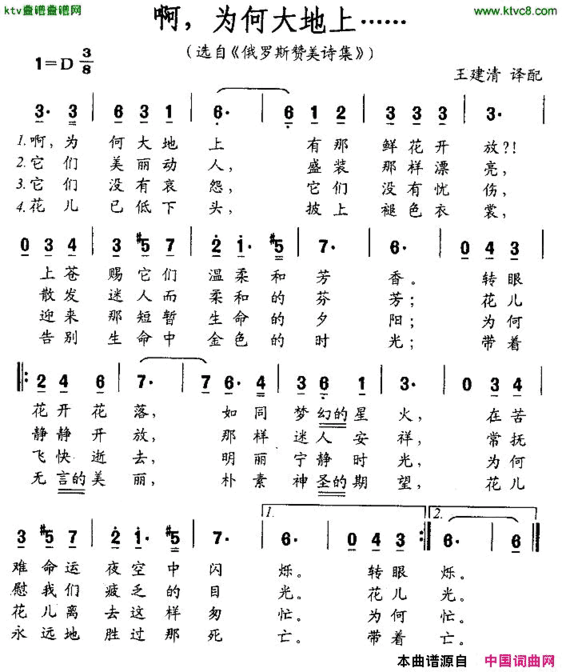 ktv查谱查谱网
www.ktvc8.com
啊，为何大地上……
（选自《俄罗斯赞美诗集》）
1=D 3/8
王建清 译配
3· 3 | 6 3 1 | 6· | 6 1 2 | 3 3 3 | 3· |
1.啊，为 何大地 上 有那 鲜花开 放？！
2.它们 美丽动 人， 盛装 那样漂 亮，
3.它们 没有哀 怨， 它们 没有忧 伤，
4.花儿 已低下 头， 披上 褪色衣 裳，
0 3 4 | 3 #5 7 | 2 1· #5 | 7· | 6· | 0 4 3 |
上苍 赐它们 温柔和 芳 香。 转眼
散发 迷人而 柔和的 芬 芳； 花儿
迎来 那短暂 生命的 夕 阳； 为何
告别 生命中 金色的 时 光； 带着
2 4 6 | 7· | 7 6· 4 | 3 6 1 | 3· | 0 3 4 |
花开花 落， 如同 梦幻的星 火， 在苦
静静开 放， 那样 迷人安 祥， 常抚
飞快逝 去， 明丽 宁静时 光， 为何
无言的美 丽， 朴素 神圣的期 望， 花儿
1. 2.
3 #5 7 | 2 1· #5 | 7· | 6· | 0 4 3 | 6· | 6 |
难命运 夜空中 闪 烁。 转眼 烁。
慰我们 疲乏的 目 光。 花儿 光。
花儿离 去这样 匆 忙。 为何 忙。
永远地 胜过那 死 亡。 带着 亡。
本曲谱源自 中国词曲网